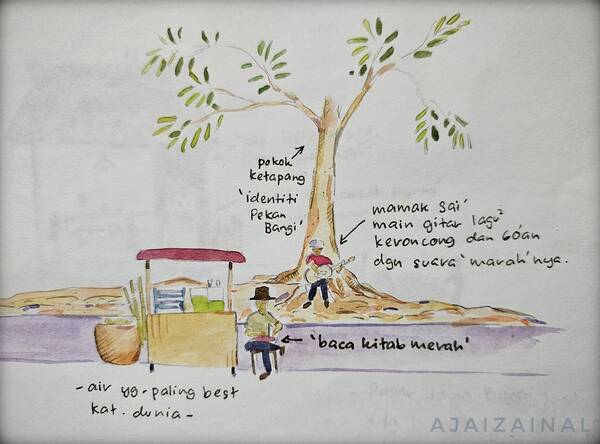 pokok
ketapang
'identiti
Pekan
Bangi'
mamak Sai'
main gitar lagu²
keroncong dan 60'an
dgn suara 'marah' nya.
'baca kitab merah'
- air yg paling best
kat. dunia -
AJAIZAINAL